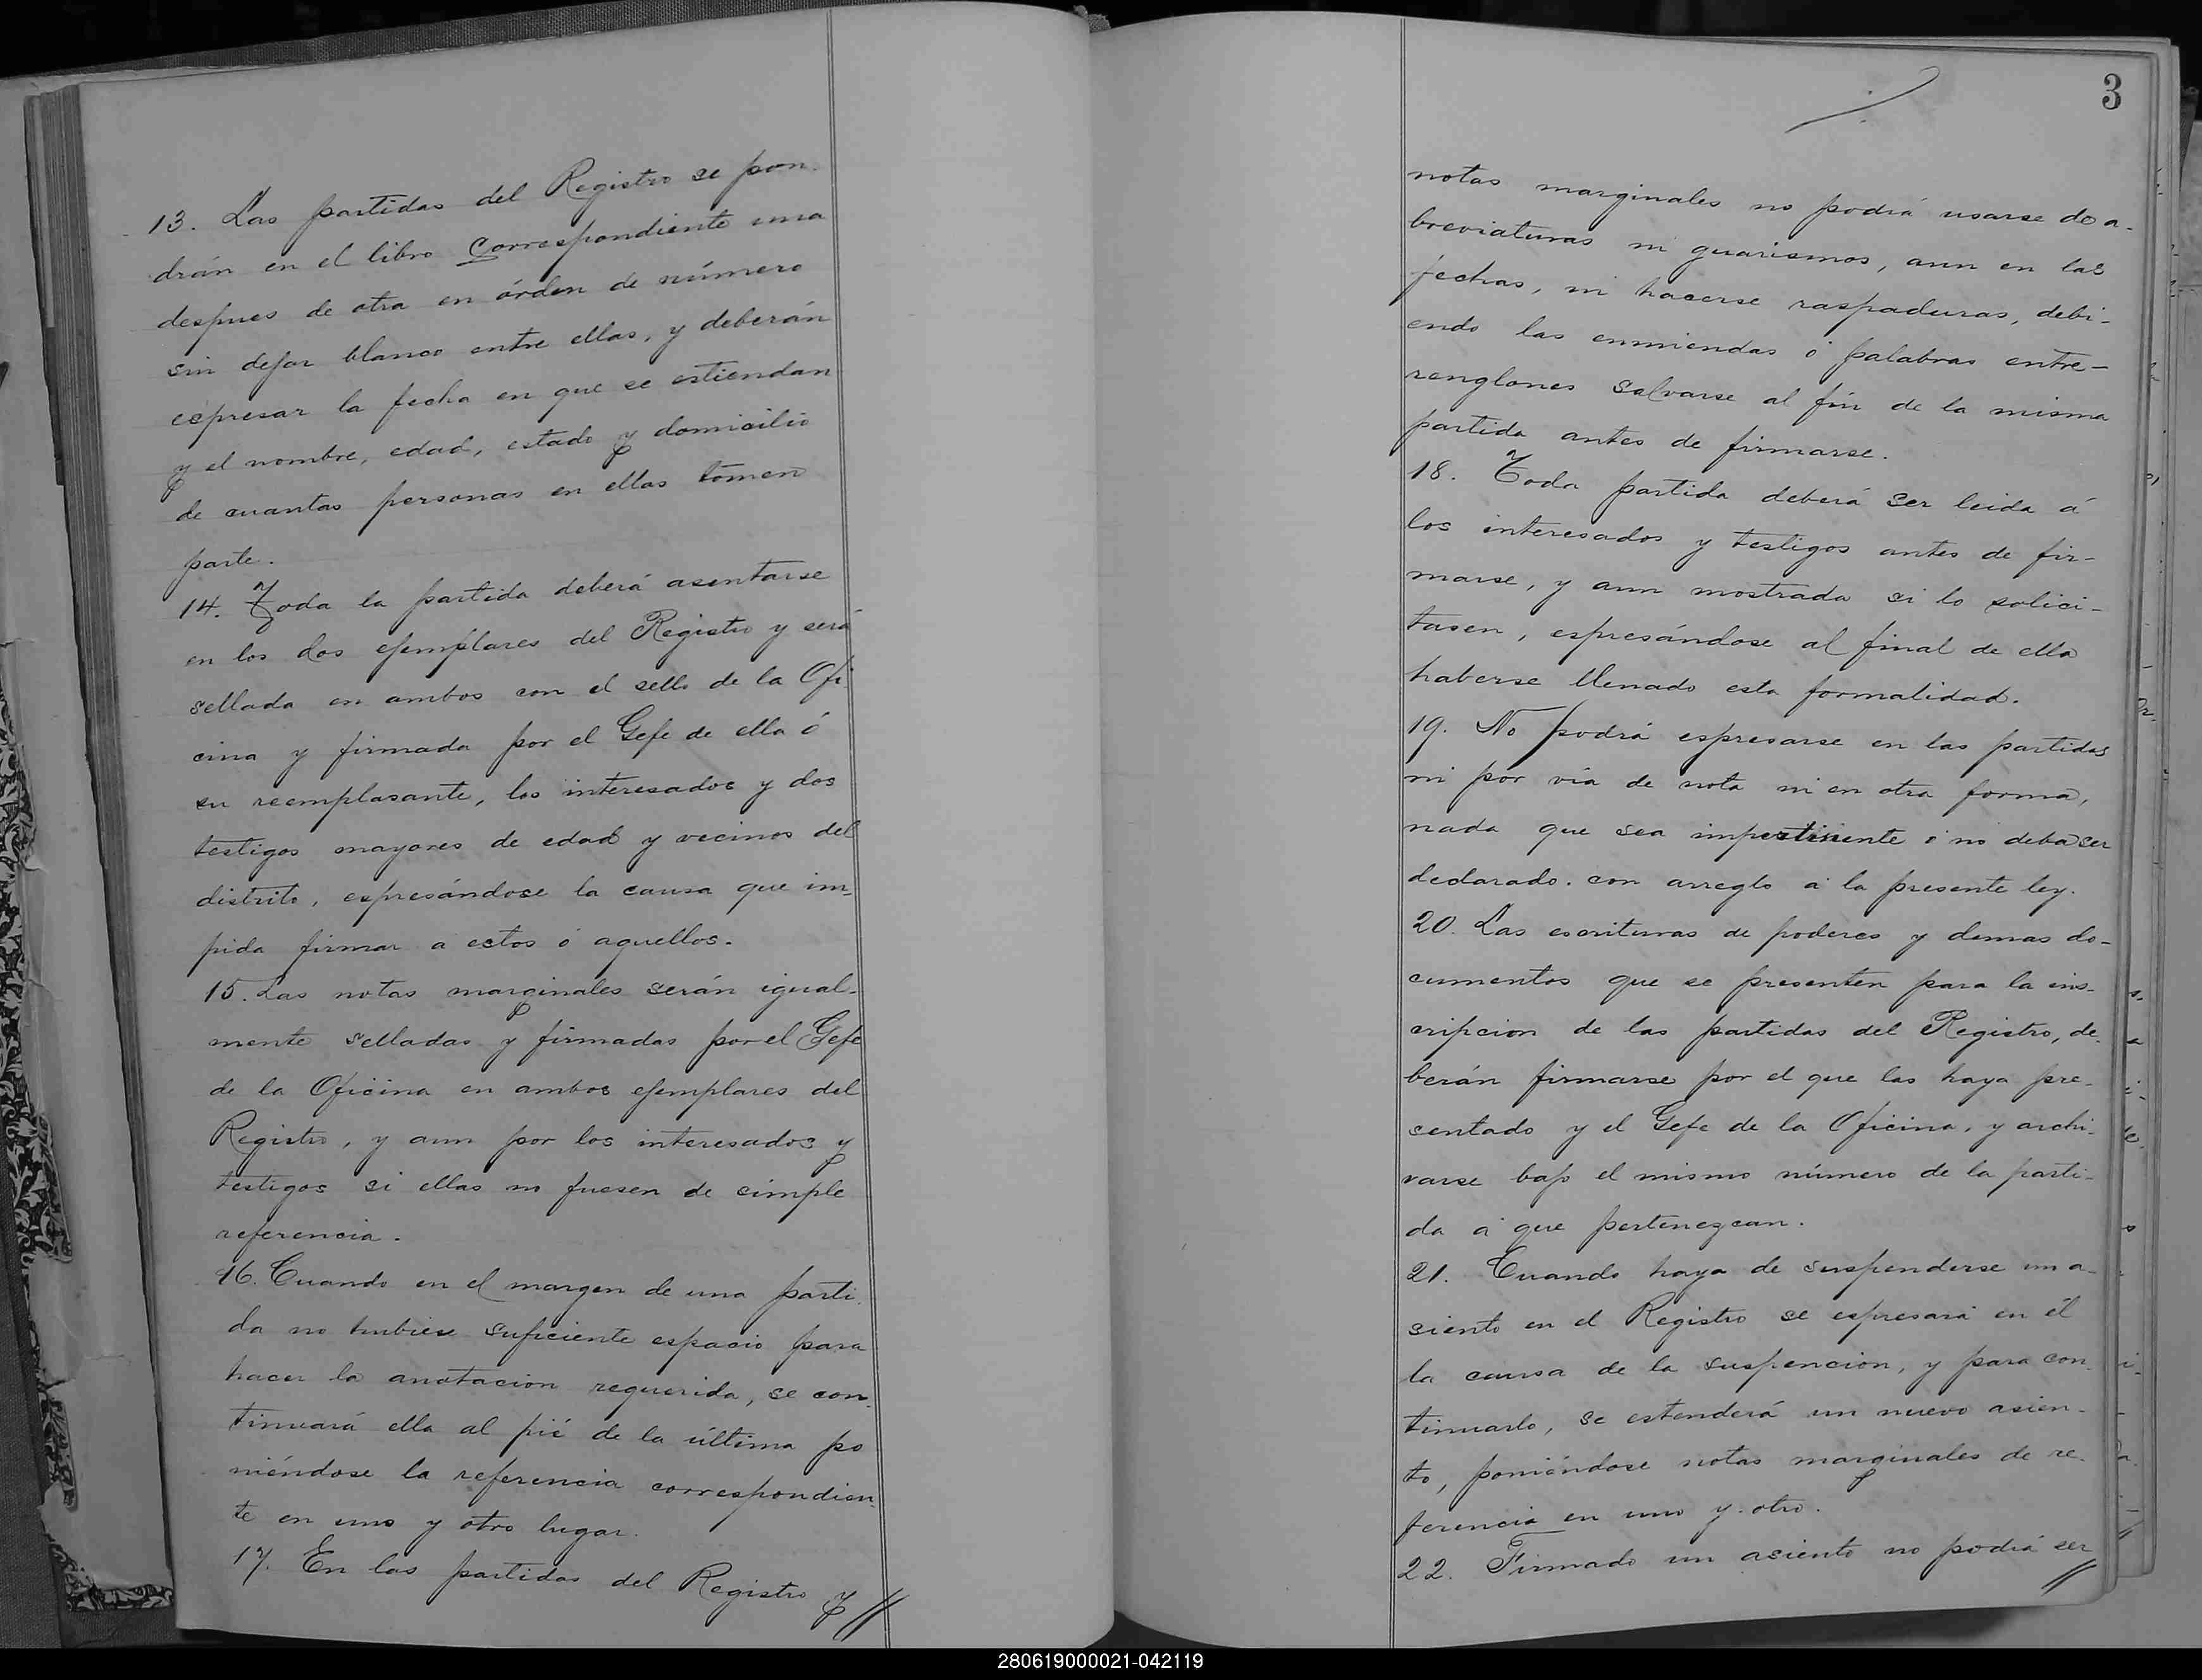 13. Las partidas del Registro se pon-
drán en el libro Correspondiente una
despues de otra en órden de número
sin dejar blanco entre ellas, y deberán
espresar la fecha en que se estiendan
y el nombre, edad, estado y domicilio
de cuantas personas en ellas tomen
parte.
14. Toda la partida deberá asentarse
en los dos ejemplares del Registro y será
sellada en ambos con el sello de la Ofi-
cina y firmada por el Gefe de ella ó
su reemplasante, los interesados y dos
testigos mayores de edad y vecinos del
distrito, espresándose la causa que im-
pida firmar a estos ó aquellos.
15. Las notas marginales serán igual-
mente selladas y firmadas por el Gefe
de la Oficina en ambos ejemplares del
Registro, y aun por los interesados y
testigos si ellas no fuesen de simple
referencia.
16. Cuando en el margen de una parti-
da no hubiese suficiente espacio para
hacer la anotacion requerida, se con-
tinuará ella al pié de la última po
niéndose la referencia correspondien-
te en uno y otro lugar.
17. En las partidas del Registro y //
3
notas marginales no podrá usarse de a-
breviaturas ni guarismos, aun en las
fechas, ni hacerse raspaduras, debi-
endo las enmiendas ó palabras entre-
renglones salvarse al fin de la misma
partida antes de firmarse.
18. Toda partida deberá ser leida á
los interesados y testigos antes de fir-
marse, y aun mostrada si lo solici-
tasen, espresándose al final de ella
haberse llenado esta formalidad.
19. No podrá espresarse en las partidas
ni por via de nota ni en otra forma,
nada que sea impertinente ó no deba ser
declarado. con arreglo a la presente ley.
20. Las escrituras de poderes y demas do-
cumentos que se presenten para la ins-
cripcion de las partidas del Registro, de-
berán firmarse por el que las haya pre-
sentado y el Gefe de la Oficina, y archi-
varse bajo el mismo número de la parti-
da a que pertenezcan.
21. Cuando haya de suspenderse un a-
siento en el Registro se espresará en él
la causa de la suspencion, y para con-
tinuarlo, se estenderá un nuevo asien-
to, poniéndose notas marginales de re-
ferencia en uno y otro.
22. Firmado un asiento no podrá ser //
280619000021-042119